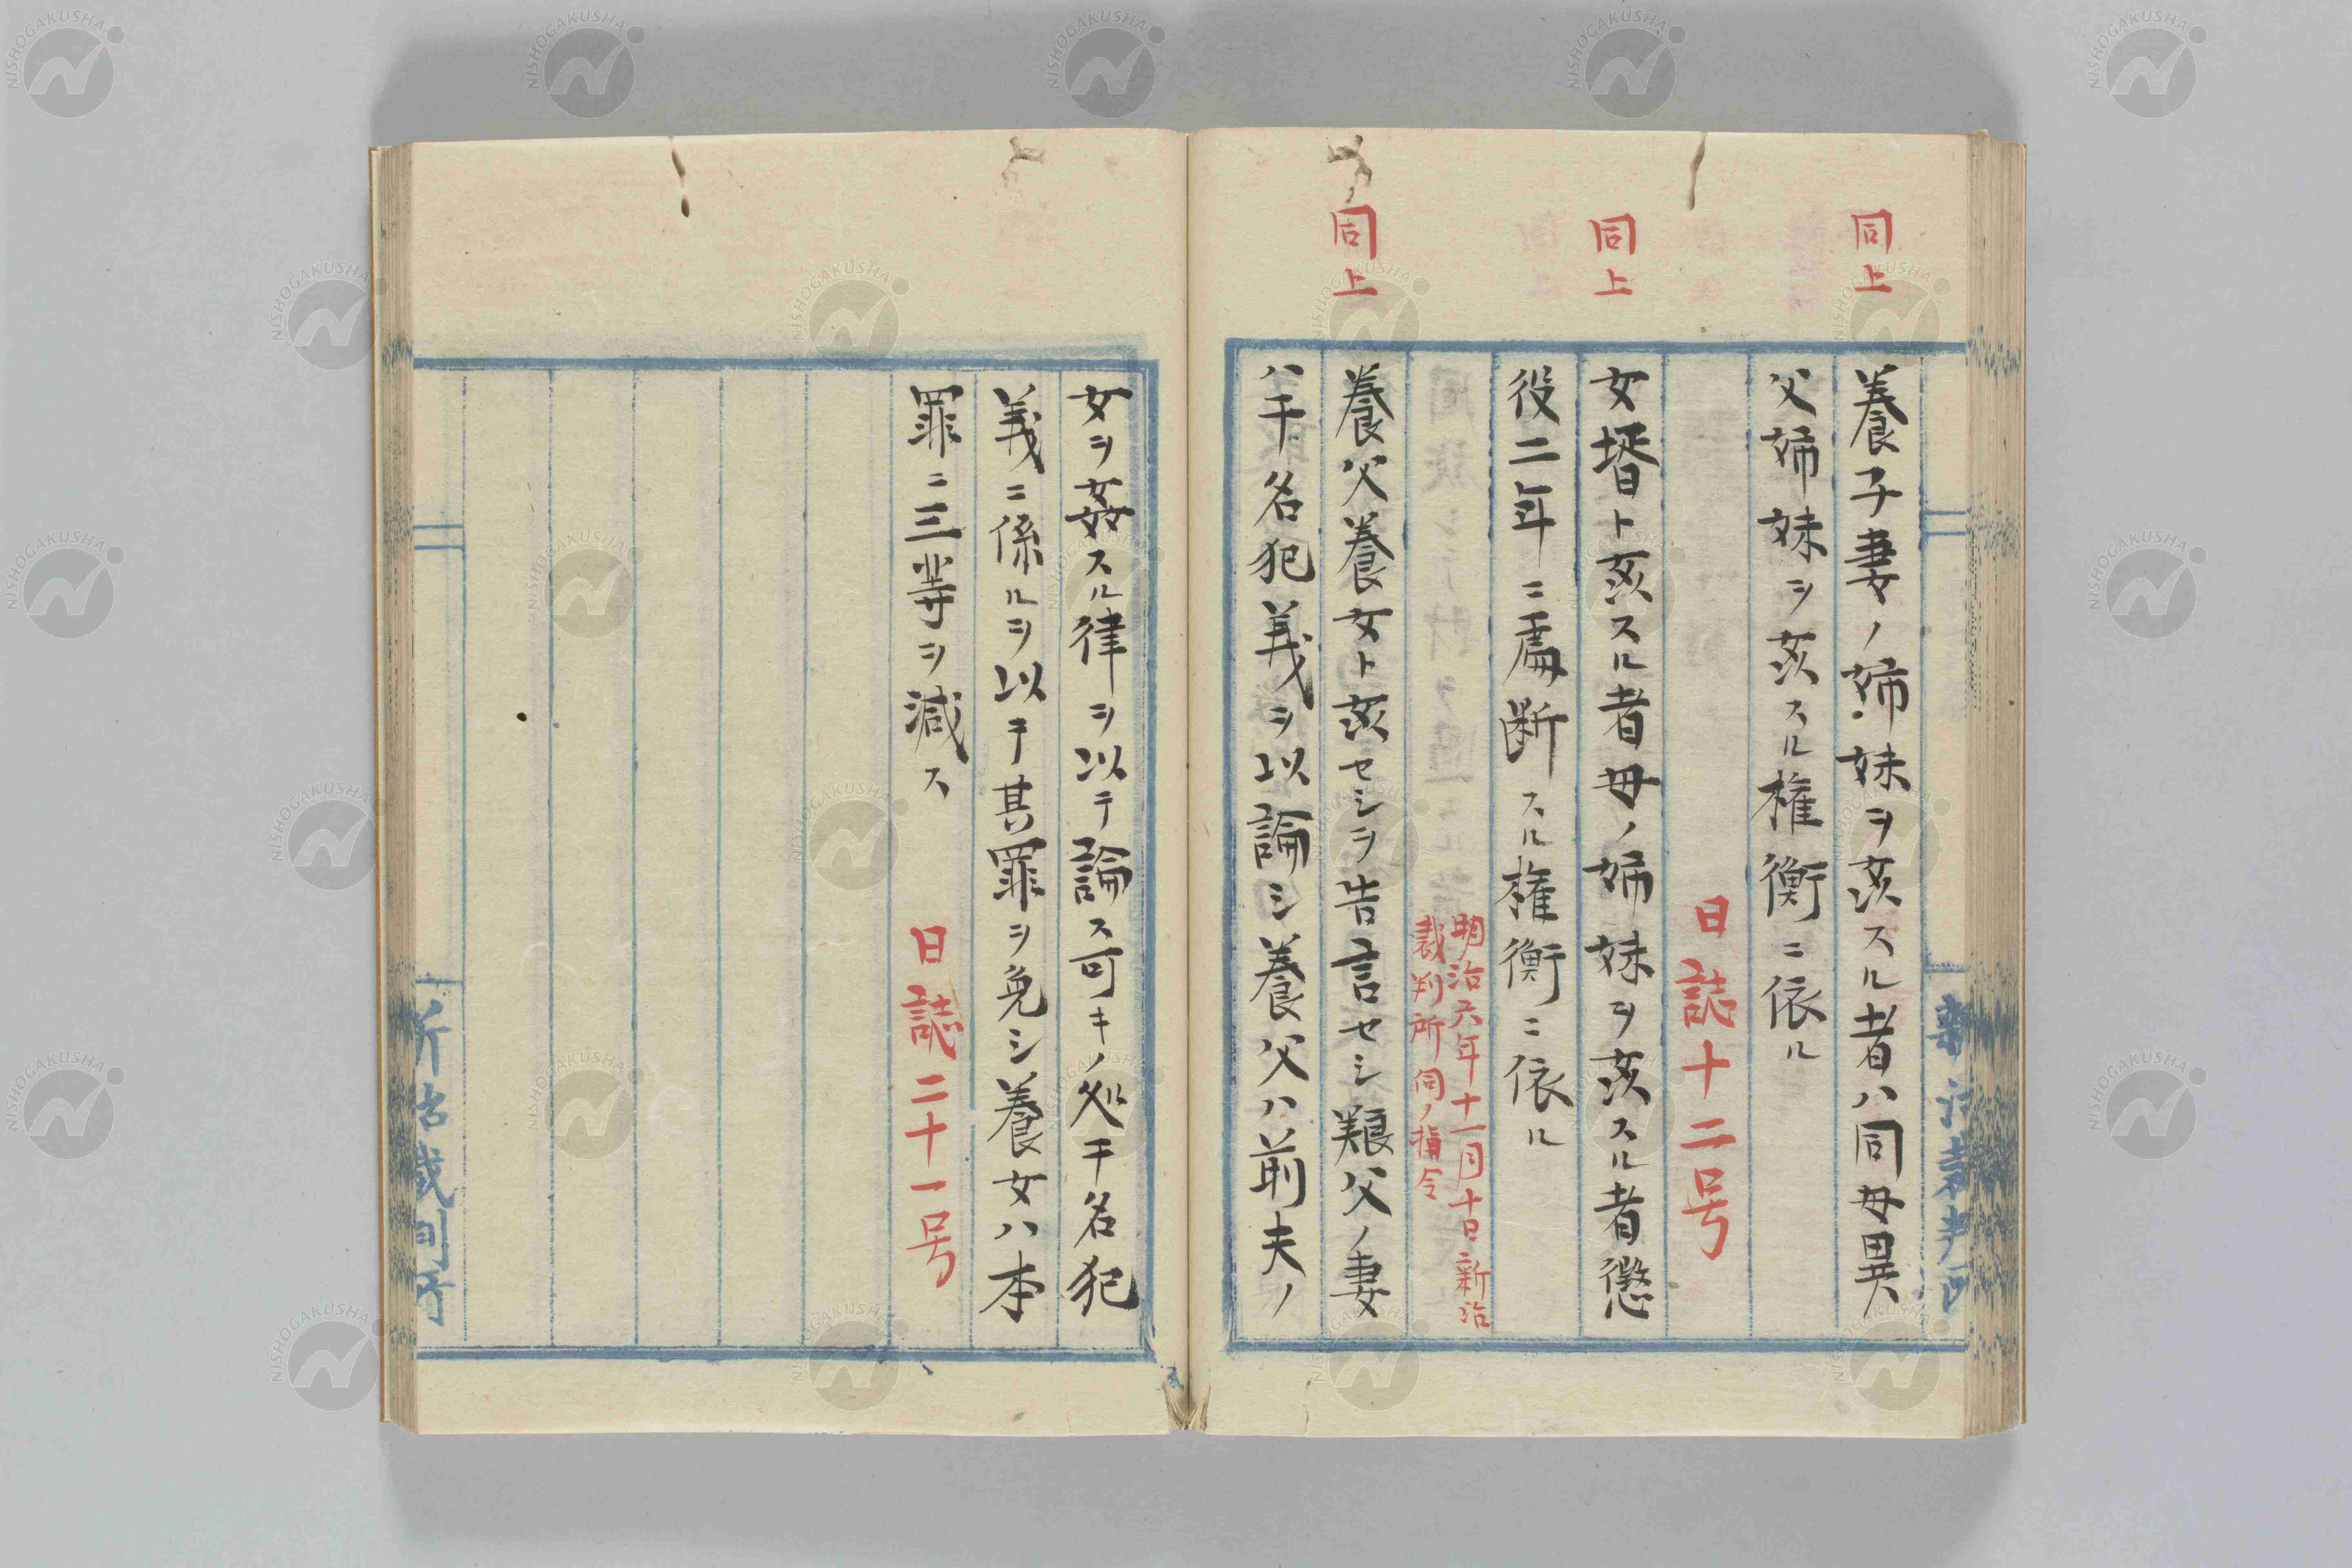 同上
養子妻ノ姉妹ヲ姦スル者ハ同母異
父姉妹ヲ姦スル権衡ニ依ル
日誌十二号
同上
女壻ト姦スル者母ノ姉妹ヲ姦スル者懲
役二年ニ處断スル権衡ニ依ル
明治六年十一月十日新治
裁判所伺ノ指令
同上
養父養女ト姦セシヲ告言セシ親父ノ妻
ハ干名犯義ヲ以論シ養父ハ前夫ノ
女ヲ姦スル律ヲ以テ論ス可キノ処干名犯
義ニ係ルヲ以テ其罪ヲ免シ養女ハ本
罪ニ三等ヲ減ス
日誌二十一号
NISHOGAKUSHA